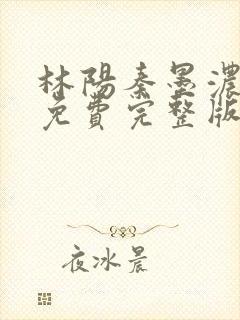 林陽秦墨濃
免費完整版
夜冰晨